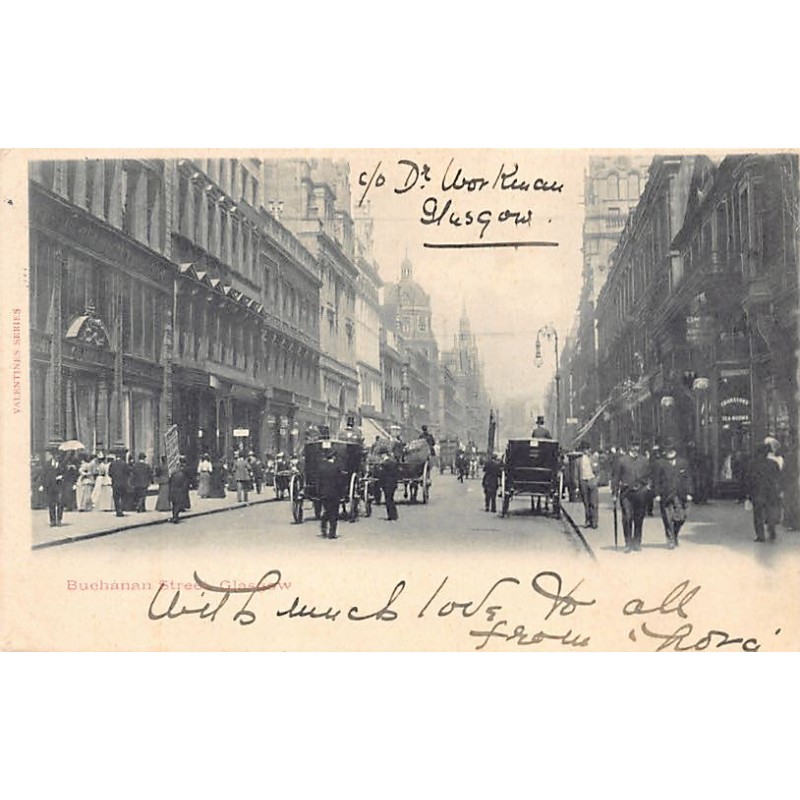 c/o Dr Workman
Glasgow.
VALENTINES SERIES
CRANSTON'S
TEA
ROOMS
Buchanan Street, Glasgow
With much love to all
from 'Nora'